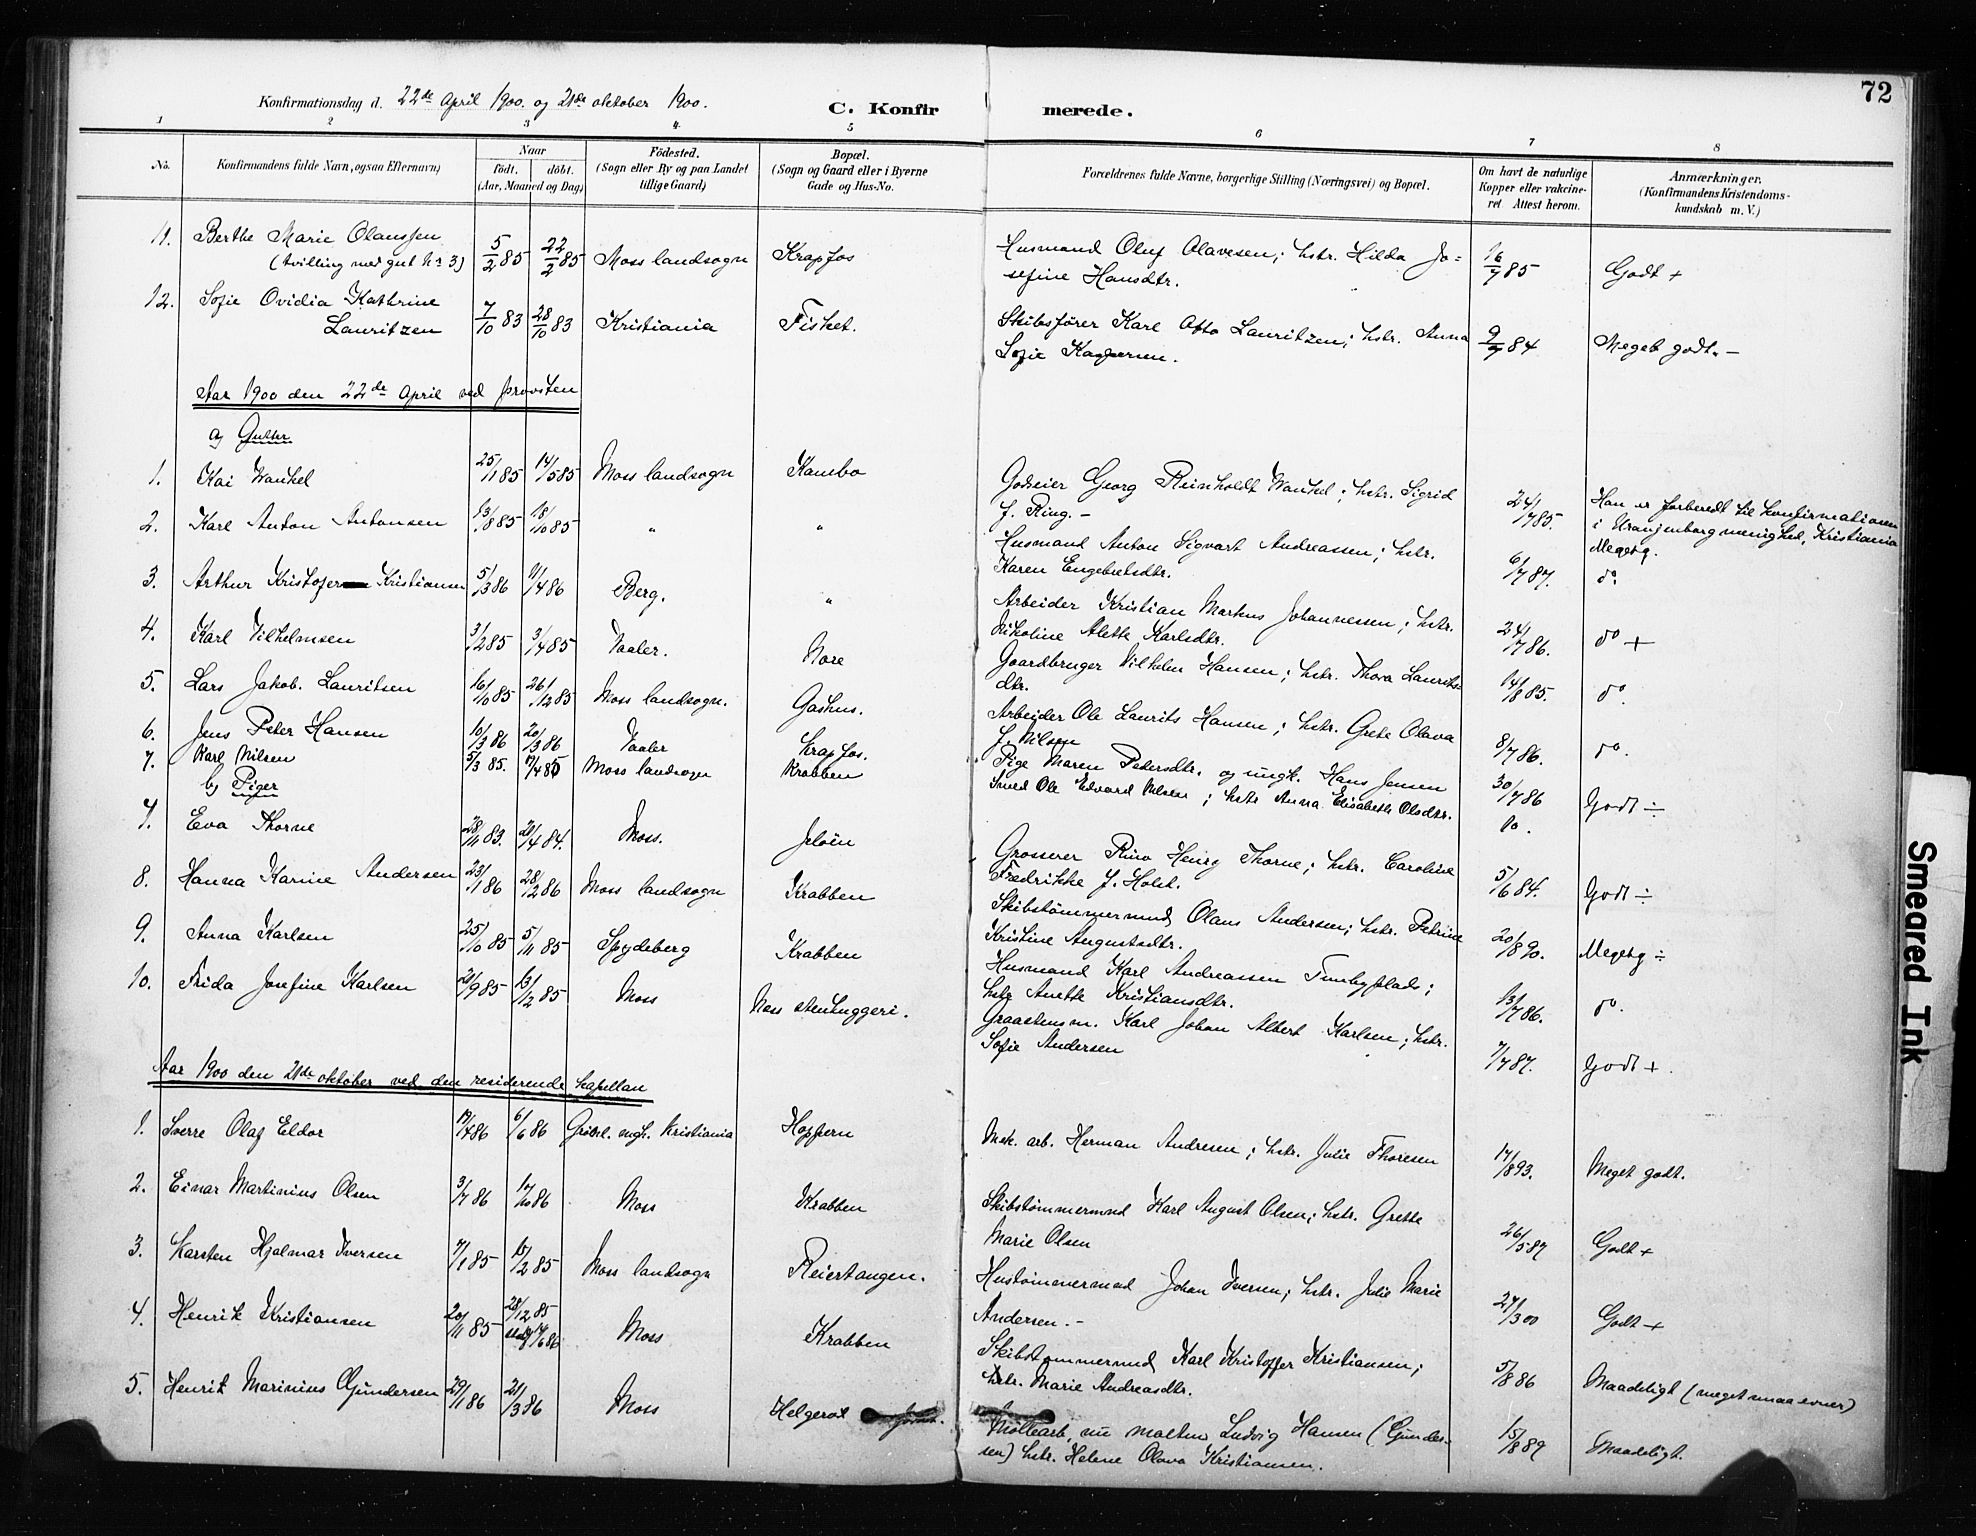 72
Konfirmationsdag d. 22de April 1900. og 21de oktober 1900.
C. Konfirmerede.
1 2 3 4. 5 6 7 8
No. Konfirmandens fulde Navn, ogsaa Efternavn) Naar födt. döbt. (Aar, Maaned og Dag) Födested. (Sogn eller By og paa Landet tillige Gaard) Bopæl. (Sogn og Gaard eller i Byerne Gade og Hus-No. Forældrenes fulde Navne, borgerlige Stilling (Næringsvei) og Bopæl. Om havt de naturlige Kopper eller vakcineret. Attest herom. Anmærkninger. (Konfirmandens Kristendomskundskab m. V.)
11. Berthe Marie Olaussen 5/2 85 22/2 85 Moss landsogn Krapfos Husmand Oluf Olavesen; hstr. Hilda Jo=
(tvilling med gut No 3) sefine Hansdtr. 16/7 85 Godt +
12. Sofie Ovidia Kathrine
Lauritzen 7/10 83 28/10 83 Kristiania Fisket. Skibsfører Karl Otto Lauritzen; hstr. Anna
Sofie Kaspersen. 9/7 84 Meget godt. –
Aar 1900 den 22de April ved provsten
a) Gutter
1. Kai Wankel 25/1 85 14/5 85 Moss landsogn Kambo Godseier Georg Reinholdt Wankel; hstr. Sigrid
f. Ring. – 24/7 85. Han er forberedt til konfirmationen
i Uranienborg menighed, Kristiania
2. Karl Anton Antonsen 13/8 85 18/10 85 " " Husmand Anton Sigvart Andreassen; hstr.
Karen Engebretsdtr. 6/7 87. Megetg.
do.
3. Arthur Kristofer Kristiansen 5/3 86 11/4 86 Berg. " Arbeider Kristian Markus Johannessen; hstr.
Nikoline Alette Karlsdtr. 24/7 86. do +
4. Karl Vilhelmsen 3/2 85 3/4 85 Vaaler. Nore Gaardbruger Vilhelm Hansen; hstr. Thora Laurits=
dtr. 14/8 85. do.
5. Lars Jakob. Lauritsen 16/10 85 26/12 85 Moss landsogn. Gashus. Arbeider Ole Laurits Hansen; hstr. Grete Olava
f. Nilsen 8/7 86. do.
6. Jens Peter Hansen 10/3 86 20/3 86 Vaaler Krapfos. Pige Maren Pedersdtr. og ungk. Hans Jensen 30/7 86 Godt ÷
7. Karl Nilsen 5/3 85. 17/4 85 Moss landsogn Krabben Smed Ole Edvard Nilsen; hstr Anna Elisabeth Olsdtr.
b) Piger
7. Eva Thorne 28/11 83. 20/4 84. Moss. Jeløen Grosserer Rino Henry Thorne; hstr. Caroline
Fredrikke f. Holst. 5/6 84. Godt ÷
8. Hanna Karine Andersen 23/1 86 28/2 86 Moss landsogn Krabben Skibstømmermand Olaus Andersen; hstr. Petrine
Kristine Augustsdtr. 20/8 90. Megetg ÷
9. Anna Karlsen 25/10 85 5/11 85 Spydeberg Krabben Husmand Karl Andreassen Tunbyplads;
hstr Anette Kristiansdtr. 13/7 86. do.
10. Frida Josefine Karlsen 21/9 85 13/12 85 Moss Nøss stenhuggeri. Graastensm. Karl Johan Albert Karlsen; hstr.
Sofie Andersen 7/7 87. Godt +.
Aar 1900 den 21de oktober ved den residerende kapellan
1. Sverre Olaf Eldor 17/4 86 6/6 86 Kristiania Hoppern Mek. arb. Herman Andresen; hstr. Julie Thoresen 17/8 93. Meget godt.
2. Einar Martinius Olsen 3/7 86 17/10 86 Moss Krabben Skibstømmermand Karl August Olsen; hstr. Grette
Marie Olsen 26/5 87 Godt +
3. Karsten Hjalmar Iversen 7/1 85 15/2 85 Moss landsogn Reiertangen. Hustømmermand Johan Iversen; hstr. Julie Marie
Andersen. – 27/3 00 Godt +
4. Henrik Kristiansen 20/11 85 28/12 85 Moss Krabben Skibstømmermand Karl Kristoffer Kristiansen;
hstr. Marie Andreasdtr. 5/8 86 Maadeligt (meget smaa evner)
5. Henrik Marinius Gundersen 29/1 86 21/3 86 Moss Helgerød Møllearb., nu maltm Ludvig Hansen (Gunder=
sen) hstr. Helene Olava Kristiansen. 15/8 89 Maadeligt.
Smeared Ink